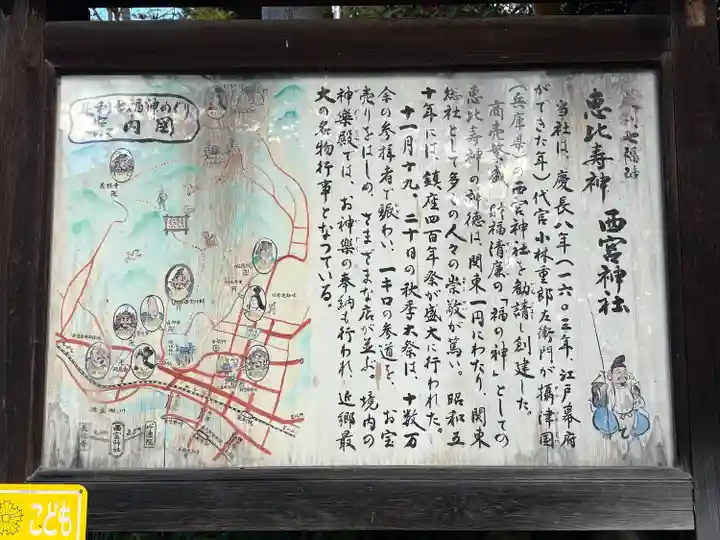 足利七福神
恵比寿神 西宮神社
当社は、慶長八年(一六〇三年、江戸幕府
ができた年)代官小林重郎左衛門が摂津国
(兵庫県)の西宮神社を勧請し創建した。
商売繁盛、除福清廉の「福の神」としての
恵比寿神の神徳は、関東一円にわたり、関東
総社として多くの人々の崇敬が篤い。昭和五
十年には、鎮座四百年祭が盛大に行われた。
十一月十九、二十日の秋季大祭は、十数万
余の参拝者で賑わい、一キロの参道を、お宝
売りをはじめ、さまざまな店が並ぶ。境内の
神楽殿では、お神楽の奉納も行われ、近郷最
大の名物行事となっている。
足利七福神めぐり
案内図
西宮神社
心通院
長林寺
こども